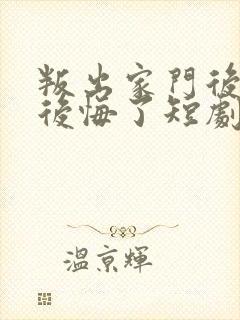 叛出家門後
後悔了短劇
溫京輝